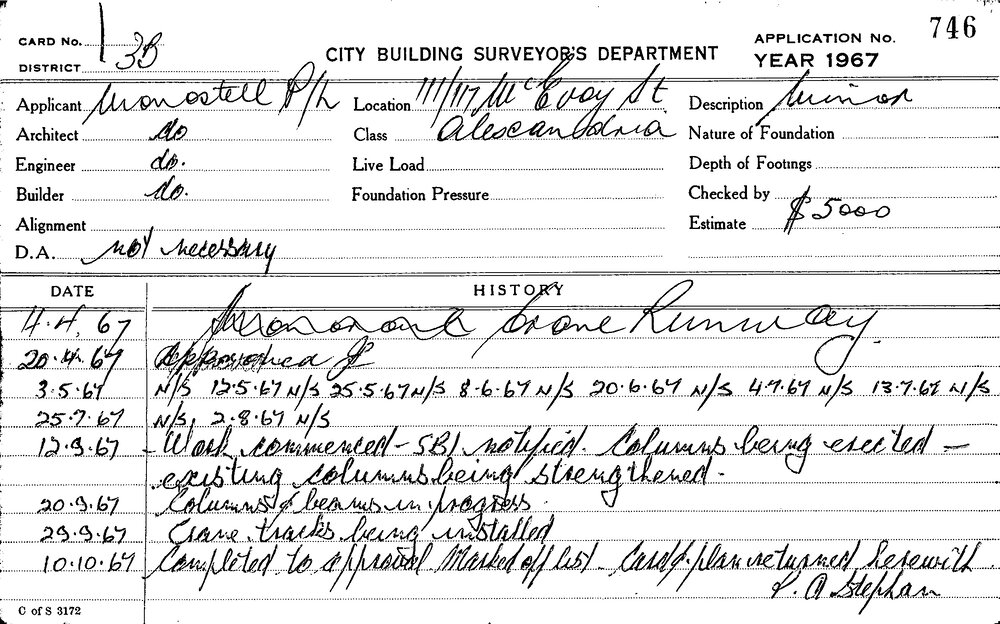 CARD No. 1 CITY BUILDING SURVEYOR'S DEPARTMENT APPLICATION No. 746
DISTRICT 3B YEAR 1967
Applicant Monostell P/L Location 111/117 McEvoy St Description Minor
Architect do Class Alexandria Nature of Foundation
Engineer do. Live Load Depth of Footings
Builder do. Foundation Pressure Checked by
Alignment Estimate $5000
D.A. not necessary
DATE HISTORY
4.4.67 Crane Runway.
20.4.67 Approved
3.5.67 N/S 12.5.67 N/S 25.5.67 N/S 8.6.67 N/S 20.6.67 N/S 4.7.67 N/S 13.7.67 N/S
25.7.67 N/S, 2.8.67 N/S
12.9.67 - Work commenced - SBI notified. Columns being erected -
existing columns being strengthened.
20.9.67 Columns & beams in progress.
29.9.67 Crane tracks being installed
10.10.67 Completed to approval Marked off list - Card & plan returned herewith.
P. A Stephan
C of S 3172